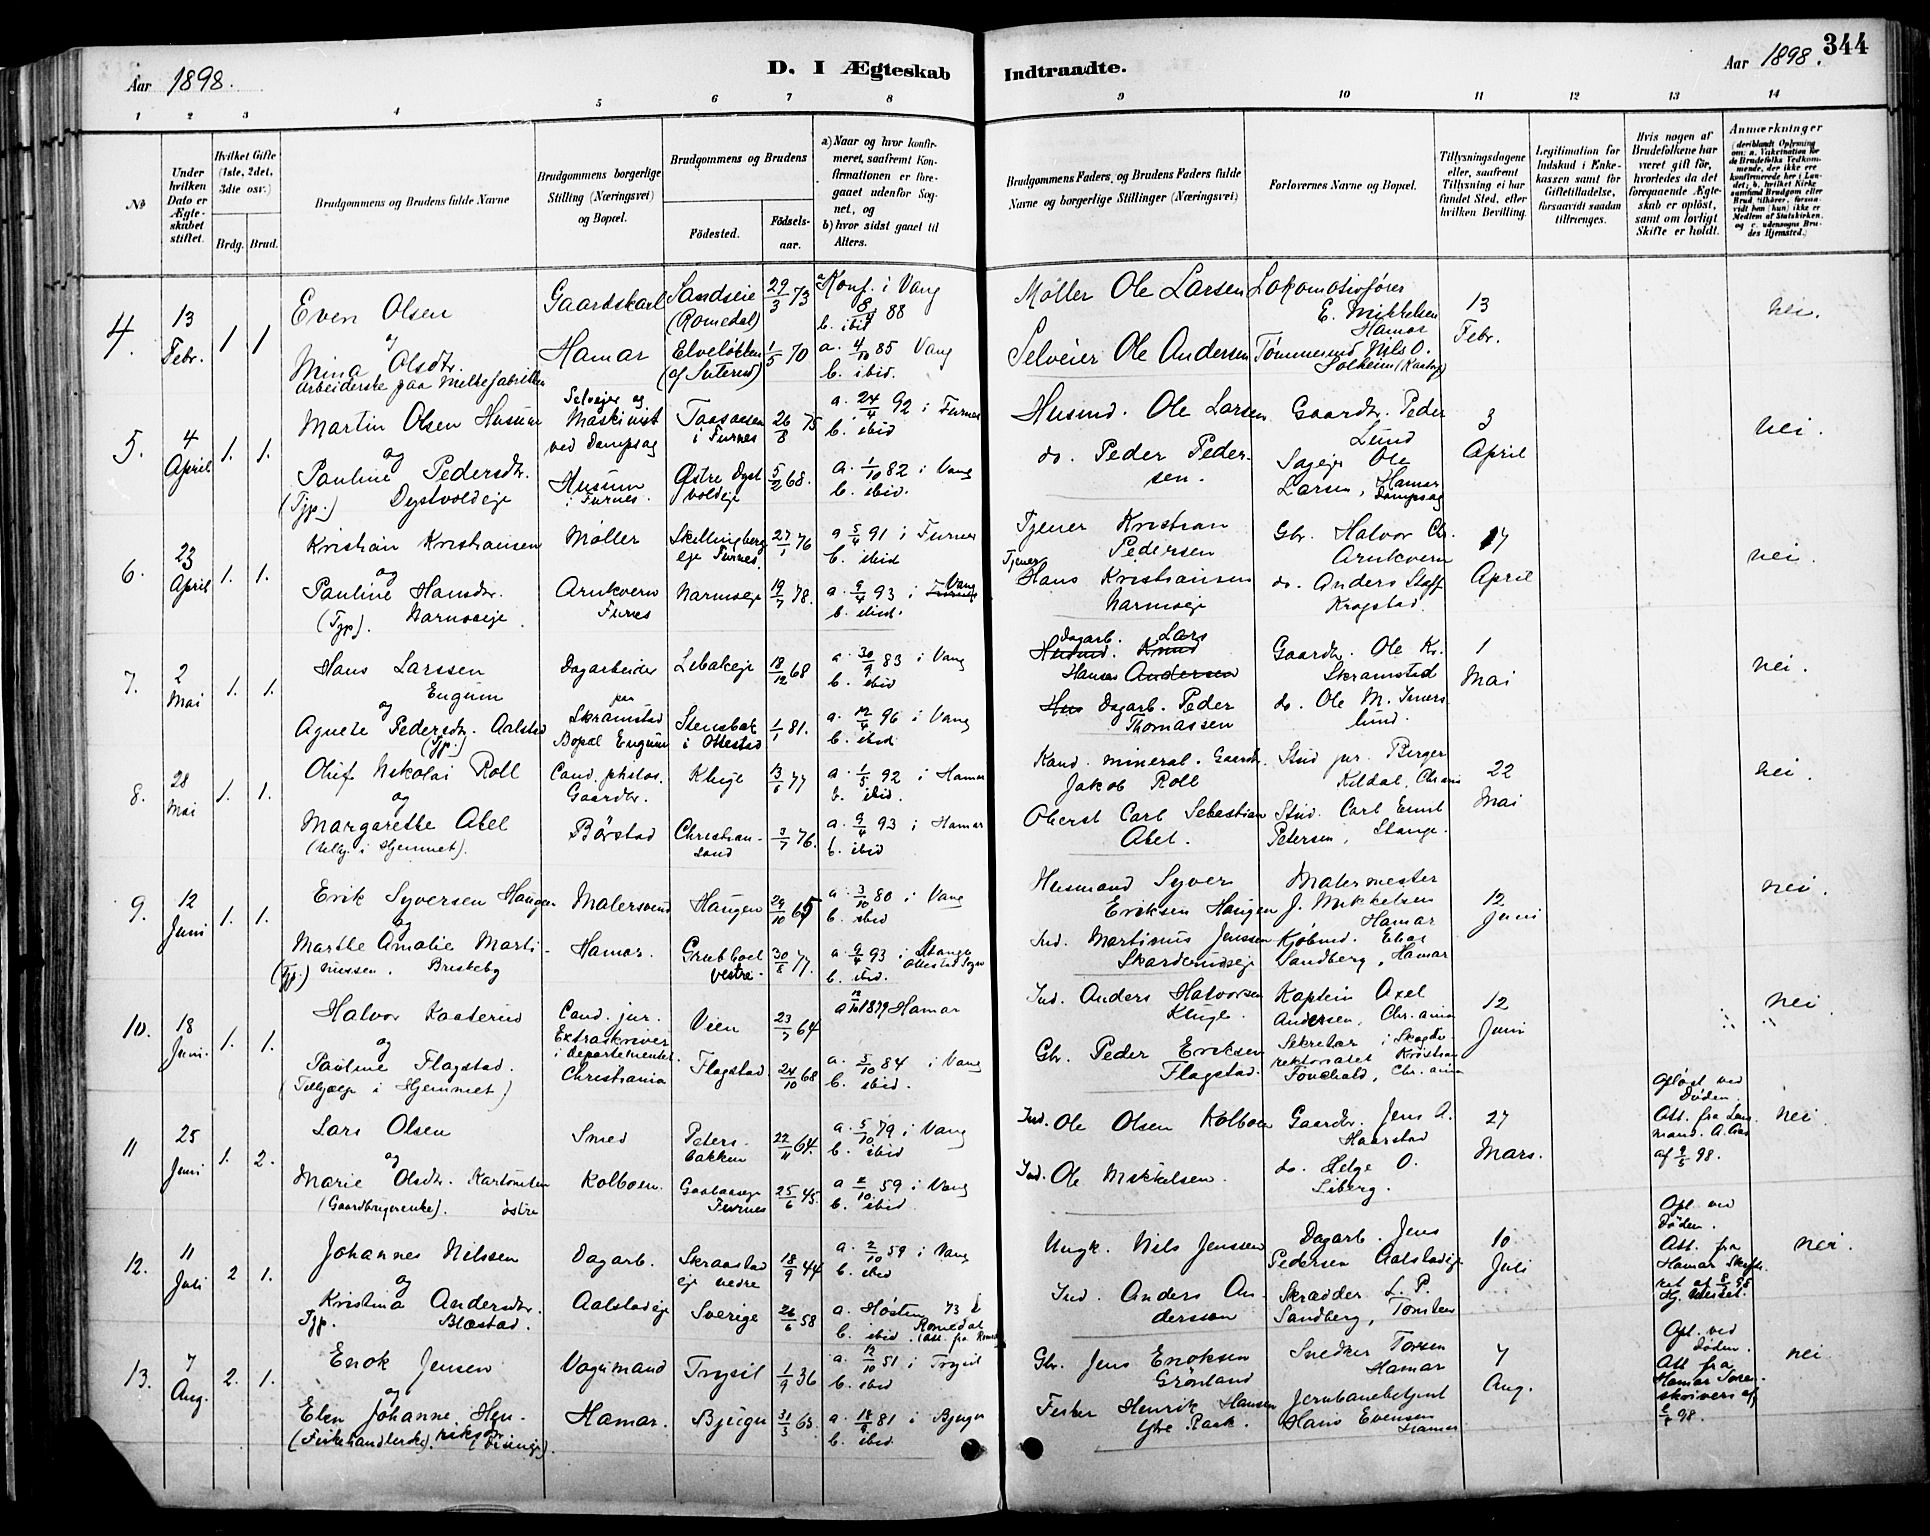 344
Aar 1898.
D. I Ægteskab Indtraadte.
Aar 1898.
1 2 3 4 5 6 7 8 9 10 11 12 13 14
No
Under hvilken Dato er Ægteskabet stiftet.
Hvilket Gifte (1ste, 2det, 3die osv.)
Brdg. Brud.
Brudgommens og Brudens fulde Navne
Brudgommens borgerlige Stilling (Næringsvei) og Bopæl.
Brudgommens og Brudens
Fødested.
Fødselsaar.
a) Naar og hvor konfirmeret, saafremt Konfirmationen er foregaaet udenfor Sognet, og
b) hvor sidst gaaet til Alters.
Brudgommens Faders, og Brudens Faders fulde Navne og borgerlige Stillinger (Næringsvei)
Forlovernes Navne og Bopæl.
Tillysningsdagene eller, saafremt Tillysning ei har fundet Sted, efter hvilken Bevilling.
Legitimation for Indskud i Enkekassen samt for Giftetilladelse, forsaavidt saadan tiltrænges.
Hvis nogen af Brudefolkene har været gift før, hvorledes da det foregaaende Ægteskab er opløst, samt om lovligt Skifte er holdt.
Anmærkninger (deriblandt Oplysning om: a. Vaccination for de Brudefolks Vedkommende, der ikke ere konfirmerede her i Landet; b. hvilket Kirkesamfund Brudgom eller Brud tilhører, forsaavidt han (hun) ikke er Medlem af Statskirken, og c. udensogns Brudes Hjemsted.)
4. 13 Febr. 1 1
Even Olsen Gaardskarl Sandseie (Romedal) 29/3 73 a. Konf. i Vang 88 b. ibid Møller Ole Larsen Lokomotivfører E. Mikkelsen Hamar 13 Febr. nei.
og
Mina Olsdtr. Hamar 1/5 70 a. 4/10 85 Vang b. ibid. Selveier Ole Andersen Nils O. Solheim
Arbeiderske paa Melkefabriken
5. 4 April 1. 1.
Martin Olsen Husum Selvejer og Maskinist ved Dampsag i Furnes 26/8 75 a. 24/4 92 i Furnes b. ibid Husmd. Ole Larsen Gaardbr. Peder Lund 3 April nei.
og
Pauline Pedersdtr. Dystvoldeje (Tjp.) Husum i Furnes. Østre Dystvoldeje 5/2 68. a. 1/10 82 i Vang b. ibid. do. Peder Pedersen. Sagejer Ole Larsen, Hamar Dampsag
6. 23 April 1. 1.
Kristian Kristiansen Møller Skellingbergeje Furnes 27/1 76 a 5/4 91 i Furnes b. ibid Tjener Kristian Pedersen Gbr. Halvor Chr. Arnkvern 17 April nei.
og
Pauline Hansdtr. Narmoeje (Tjp). Arnkvern Furnes Narmoeje 19/7 78. a. 9/4 93 i Vang b. ibid. Tjener Hans Kristiansen Narmoeje do. Anders Staff Kragstad.
7. 2 Mai 1. 1.
Hans Larssen Engum Dagarbeider paa Skramstad Bopæl Engum 18/12 68 a. 30/9 83 i Vang b. ibid Dagarb. Lars Hansen Gaardbr. Ole Kr. Skramstad 1 Mai nei.
og
Agnete Pedersdtr. Aalstad (Tjp.) Stensbak i Ottestad 1/1 81. a. 12/4 96 i Vang b. ibid Dagarb. Peder Thomassen do. Ole M. Imerslund.
8. 28 Mai 1. 1.
Oluf Nikolai Roll Cand. philos. Gaardbr. 13/6 77 a. 1/5 92 i Hamar b. ibid. Kand. mineral. Gaardbr. Jakob Roll Stud jur. Birger Kildal, Chr.ania 22 Mai nei.
og
Margarethe Abel (Selv. i Hjemmet). Børstad Christiansand 3/7 76. a. 9/4 93 i Hamar b. ibid Oberst Carl Sebastian Abel. Stud. Carl Emil Petersen, Stange.
9. 12 Juni 1. 1.
Erik Syversen Haugen Malersvend Haugen 29/10 65 a. 3/10 80 i Vang b. ibid Husmand Syver Eriksen Haugen Malermester J. Mikkelsen Hamar 12 Juni nei.
og
Marthe Amalie Martinussen. Briskeby (Tjp.) Hamar. Grubboel vestre. 30/8 77. a. 9/4 93 i Stange Ottestad Sogn b. ibid. Ind. Martinus Jenssen Skarderudseje Kjøbmd. Einar Sandberg, Hamar
10. 18 Juni. 1. 1.
Halvor Kaaterud Cand. jur. Extraskriver i departementet Christiania Vien 23/7 64 1879 Hamar Ind. Anders Halvorsen Kluge Kaptein Axel Andersen, Chr.ania 12 Juni nei
og
Pauline Flagstad. (Tilhjælp i Hjemmet) Flagstad 24/10 68 a. 5/10 84 i Vang b. ibid. Gbr. Peder Eriksen Flagstad. Sekretær i Skogdirektoriatet Kristian Fonahald, Chr.ania
11 25 Juni 1. 2.
Lars Olsen Smed Petersbakken 22/11 64. a. 5/10 79 i Vang b. ibid Ind. Ole Olsen Kolboen Gaardbr. Jens A. Haarstad 27 Mars. Opløst ved Døden. Att. fra Lensmand. A. Aas af 9/5 98. nei.
og
Marie Olsdtr. Kartomten østre (Gaardbrugerenke). Kolboen. Furnes 25/6 45. a 2/10 59 i Vang b. ibid. Ind. Ole Mikkelsen. do. Helge O. Liberg.
12. 11 Juli 2 1.
Johannes Nilssen Dagarb. Skraastadeje nedre 18/9 44 a. 2/10 59 i Vang b. ibid. Ungk. Nils Jenssen Dagarb. Jens Pedersen Aalstadeje 10 Juli Opl. ved Døden. Att. fra Hamar Skifteret af 8/7 95 nei.
og
Kristina Andersdtr. Tjp. Blæstad. Aalstadeje Sverige 26/6 58 a. Høsten 73 i Romedal b. ibid. (att. fra Romedal Ind. Anders Anderssøn Skrædder L. P. Sandberg, Tomten
13. 7 Aug. 2. 1.
Enok Jensen Vognmand Trysil 1/9 36 a. 12/10 51 i Trysil b. ibid Gbr. Jens Enoksen Grønland Snedker Torsen Hamar 7 Aug. Opl. ved Døden. Att fra Hamar Sorenskriveri af 98. nei
og
Elen Johanne Henriksdtr. (Fiskehandlerske). Hamar. Bjugn 31/3 63. a. 81 i Bjugn b. ibid Fisker Henrik Hansen Ytre Rask. Jernbanebetjent Hans Evensen Hamar